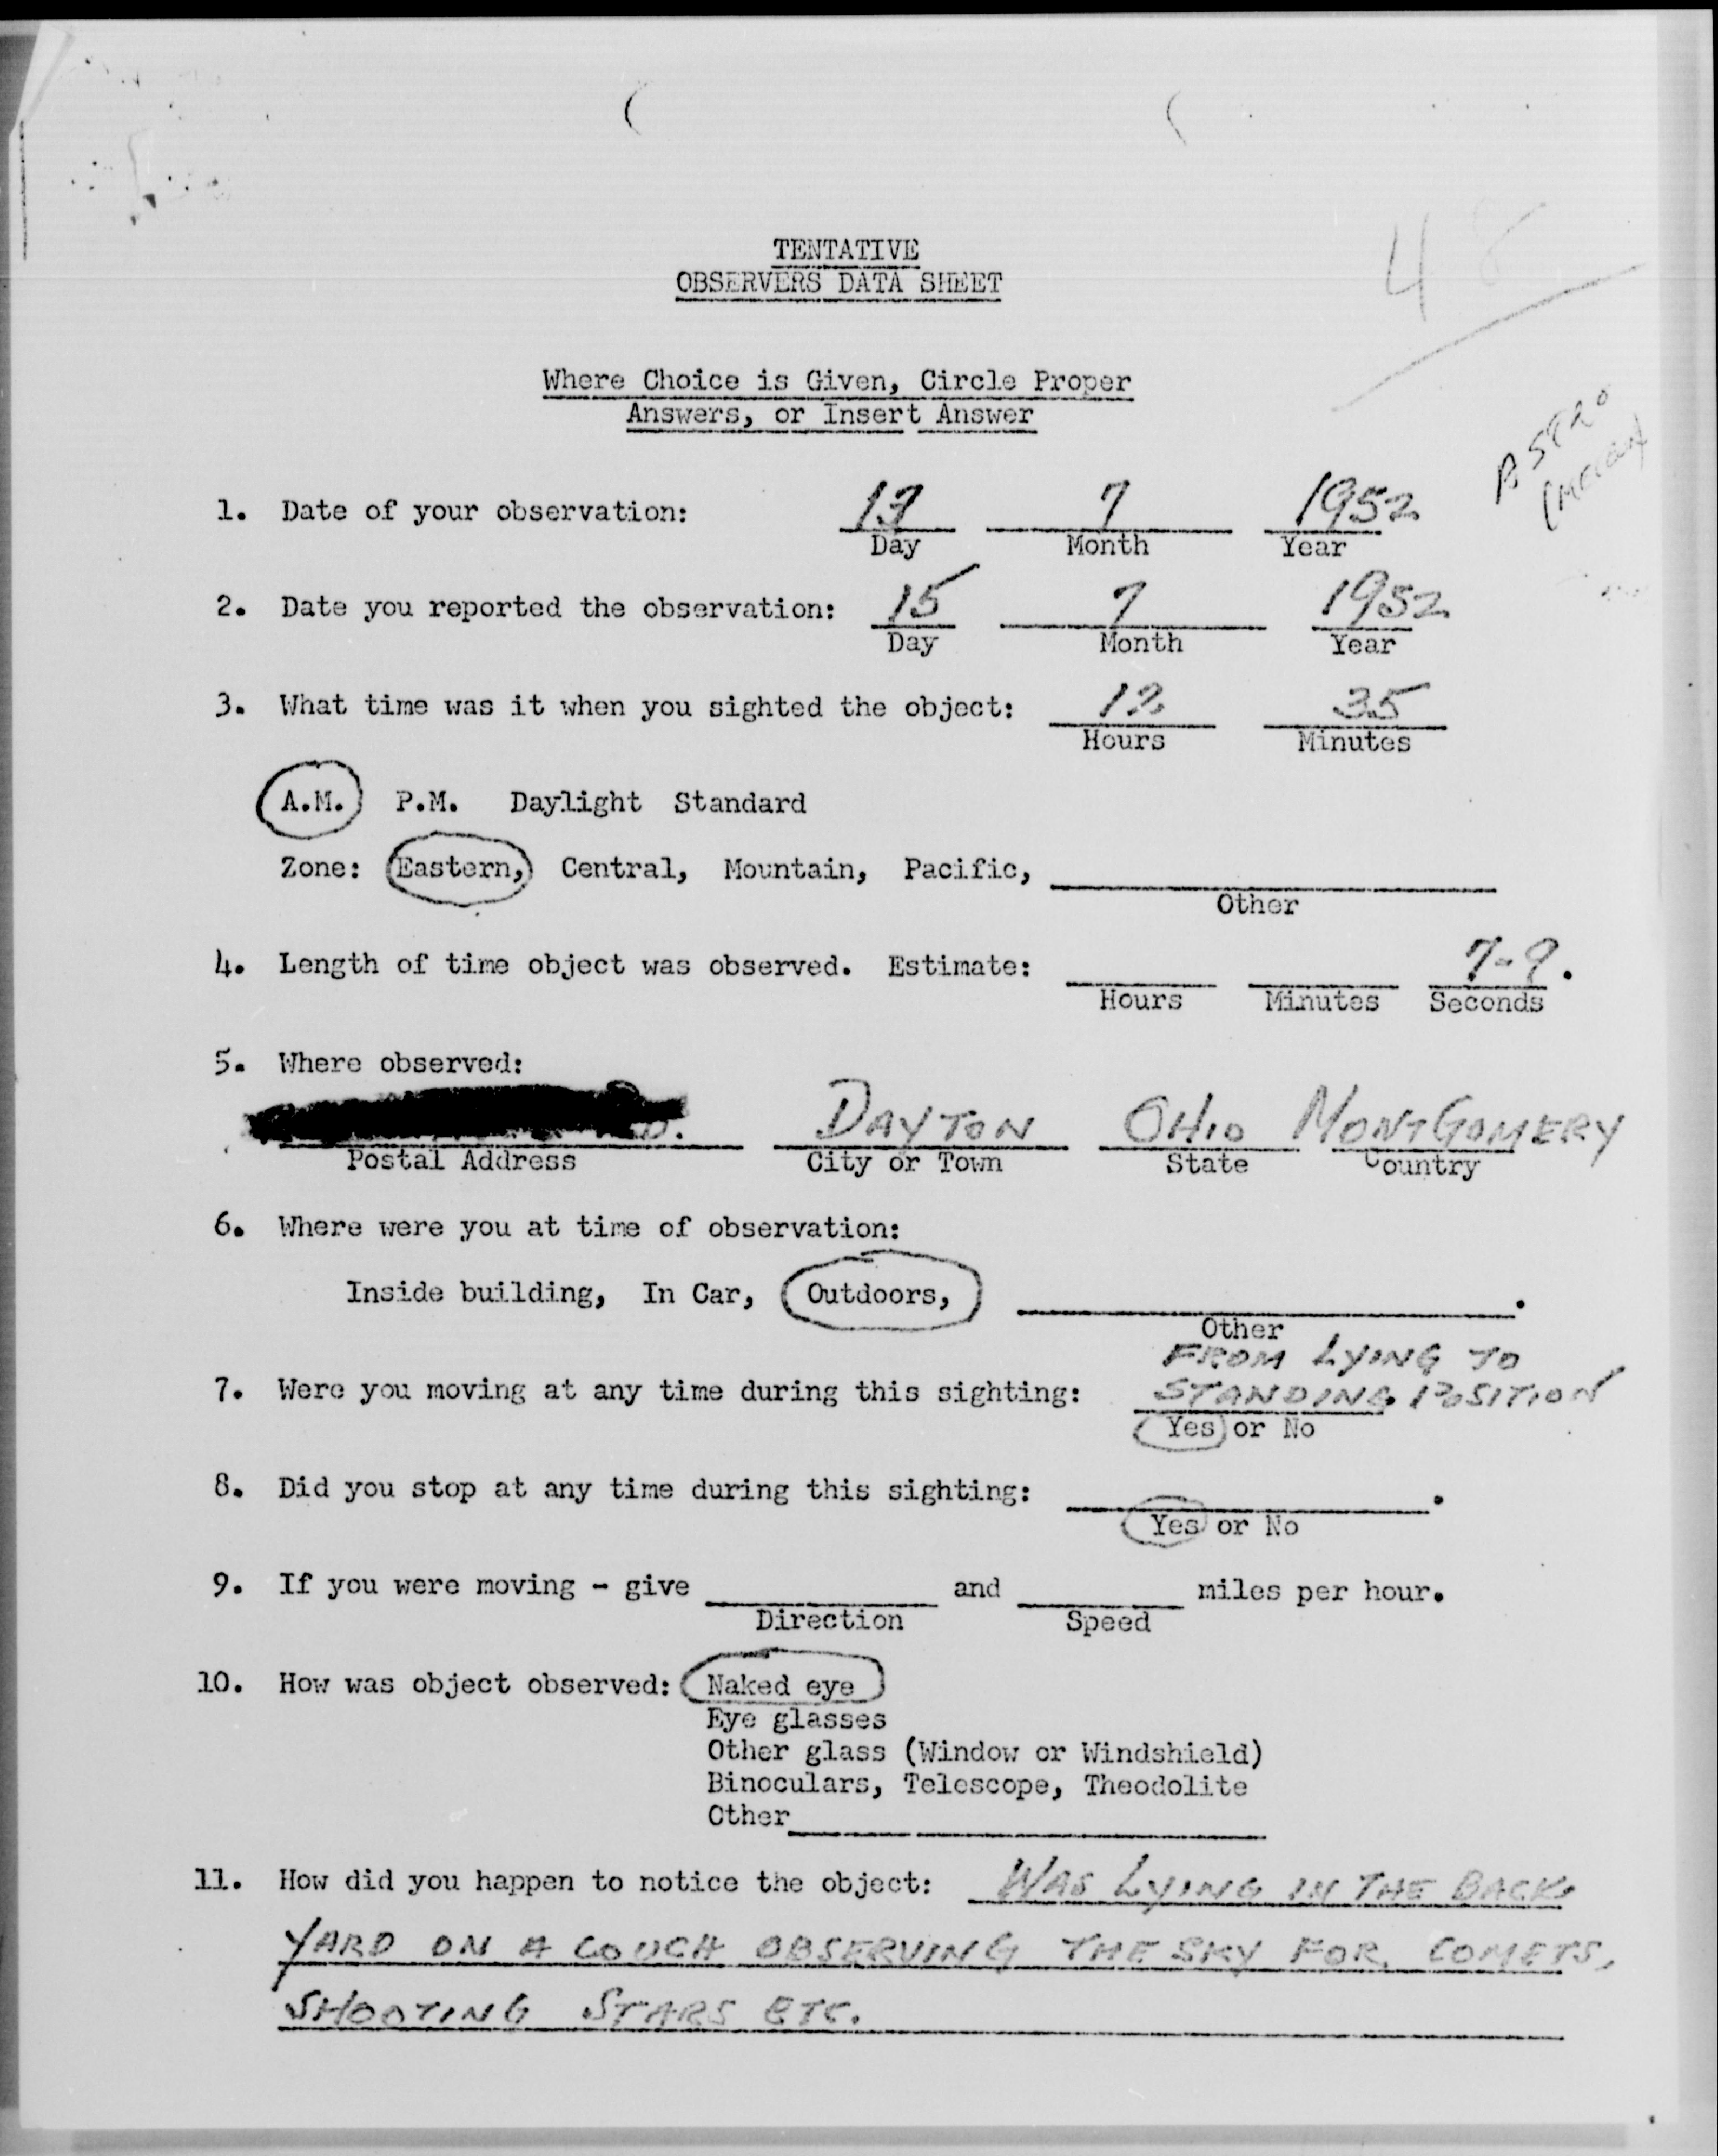 48
TENTATIVE
OBSERVERS DATA SHEET
Where Choice is Given, Circle Proper
Answers, or Insert Answer
1. Date of your observation: 13 7 1952
Day Month Year
2. Date you reported the observation: 15 7 1952
Day Month Year
3. What time was it when you sighted the object: 12 35
Hours Minutes
A.M. P.M. Daylight Standard
Zone: Eastern, Central, Mountain, Pacific,
Other
4. Length of time object was observed. Estimate: 7-9.
Hours Minutes Seconds
5. Where observed:
DAYTON OHIO MONTGOMERY
Postal Address City or Town State Country
6. Where were you at time of observation:
Inside building, In Car, Outdoors, .
Other
FROM LYING TO
7. Were you moving at any time during this sighting: STANDING POSITION
Yes or No
8. Did you stop at any time during this sighting: .
Yes or No
9. If you were moving - give and miles per hour.
Direction Speed
10. How was object observed: Naked eye
Eye glasses
Other glass (Window or Windshield)
Binoculars, Telescope, Theodolite
Other
11. How did you happen to notice the object: WAS LYING IN THE BACK
YARD ON A COUCH OBSERVING THE SKY FOR COMETS,
SHOOTING STARS ETC.